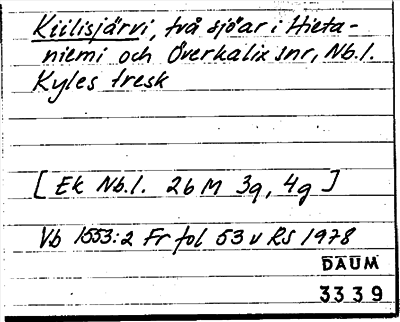 Kiilisjärvi, två sjöar i Hieta-
niemi och Överkalix snr, Nb.l.
Kyles tresk
[Ek Nb.l. 26 M 3g, 4g]
Vb 1553:2 Fr fol 53 v RS 1978
DAUM
3339